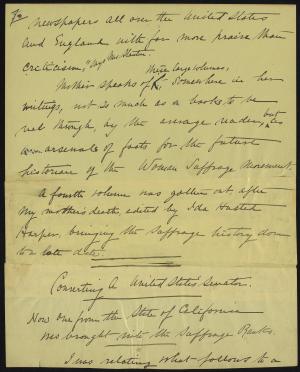 newspapers all over the United States
and England with far more praise than
criticism," says Mrs. Stanton.
these large volumes,
Mother speaks of somewhere in her
writings, not so much as a books to be
read through, by the average reader, but as
arsenals of facts for the future
historian of the Woman Suffrage Movement.
A fourth volume was gotten out after
my mother's death, edited by Ida Husted
Harper, bringing the suffrage history down
to a late date.
Converting A United States Senator.
How one from the State of California
was brought into the Suffrage Ranks.
I was relating what follows to a